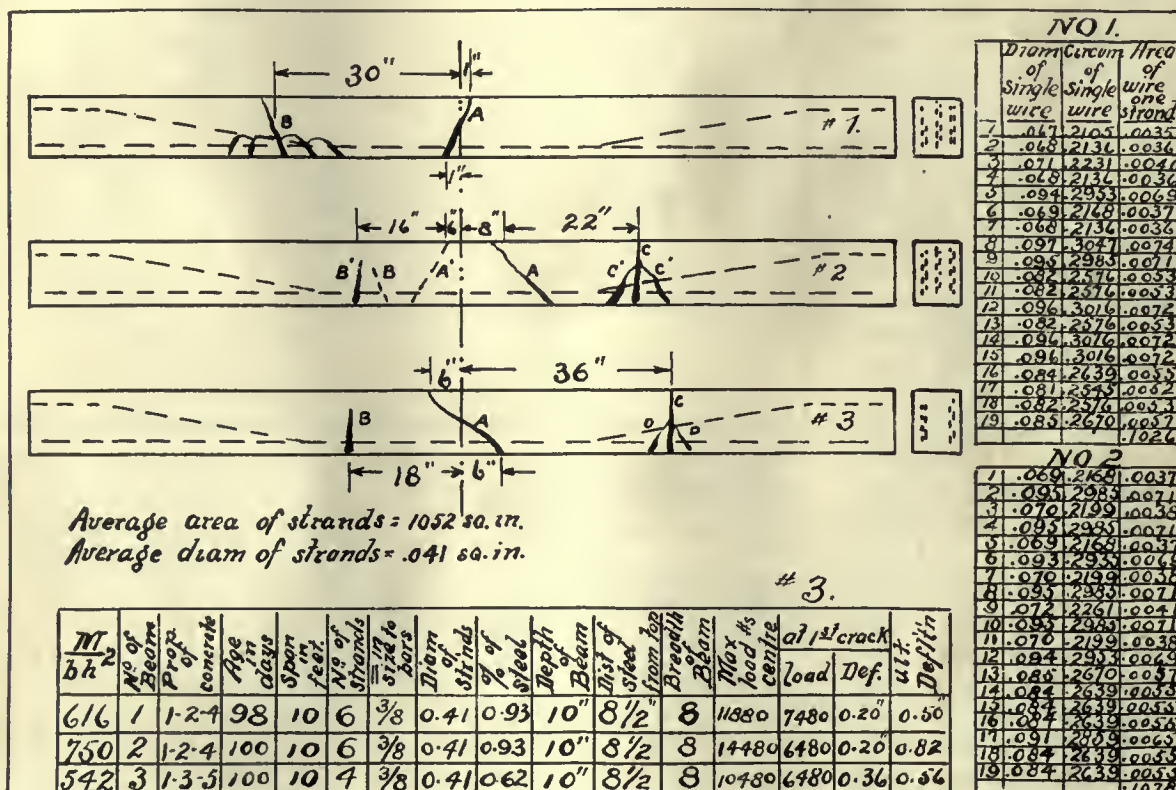 30" 1"
B A # 1.
1"
16" 6" 8" 22"
B' B A' A C' C C' # 2
6" 36"
B A C D D # 3
18" 6"
Average area of strands = 1052 sq. in.
Average diam of strands = .041 sq. in.
# 3.
M/bh² | No. of Beam | Prop. of concrete | Age in days | Span in feet | No. of strands | = in size to bars | Diam of strands | % of steel | Depth of Beam | Dist of steel from top | Breadth of Beam | Max load #s centre | at 1st crack load | Def. | ult. Deflt'n
616 1 1-2-4 98 10 6 3/8 0.41 0.93 10" 8 1/2" 8 11880 7480 0.20" 0.50"
750 2 1-2-4 100 10 6 3/8 0.41 0.93 10" 8 1/2 8 14480 6480 0.20" 0.82
542 3 1-3-5 100 10 4 3/8 0.41 0.62 10" 8 1/2 8 10480 6480 0.36 0.56
NO 1.
Diam of single wire | Circum of single wire | Area of wire one strand
1 .067 .2105 .0035
2 .068 .2136 .0036
3 .071 .2231 .0041
4 .068 .2136 .0036
5 .094 .2953 .0069
6 .069 .2168 .0037
7 .068 .2136 .0036
8 .097 .3047 .0074
9 .095 .2985 .0071
10 .082 .2576 .0053
11 .082 .2576 .0053
12 .096 .3016 .0072
13 .082 .2576 .0053
14 .096 .3016 .0072
15 .096 .3016 .0072
16 .084 .2639 .0055
17 .081 .2545
18 .082 .2576 .0053
19 .085 .2670 .0057
.1026
NO 2
1 .069 .2168 .0037
2 .095 .2985 .0071
3 .070 .2199 .0038
4 .095 .2985 .0071
5 .069 .2168 .0037
6 .093 .2953
7 .070 .2199 .0038
8 .095 .2985 .0071
9 .072 .2261 .0041
10 .095 .2985 .0071
11 .070 .2199 .0038
12 .094 .2953 .0069
13 .085 .2670 .0057
14 .084 .2639 .0055
15 .084 .2639 .0055
16 .084 .2639 .0055
17 .091 .2859 .0065
18 .084 .2639 .0055
19 .084 .2639 .0055